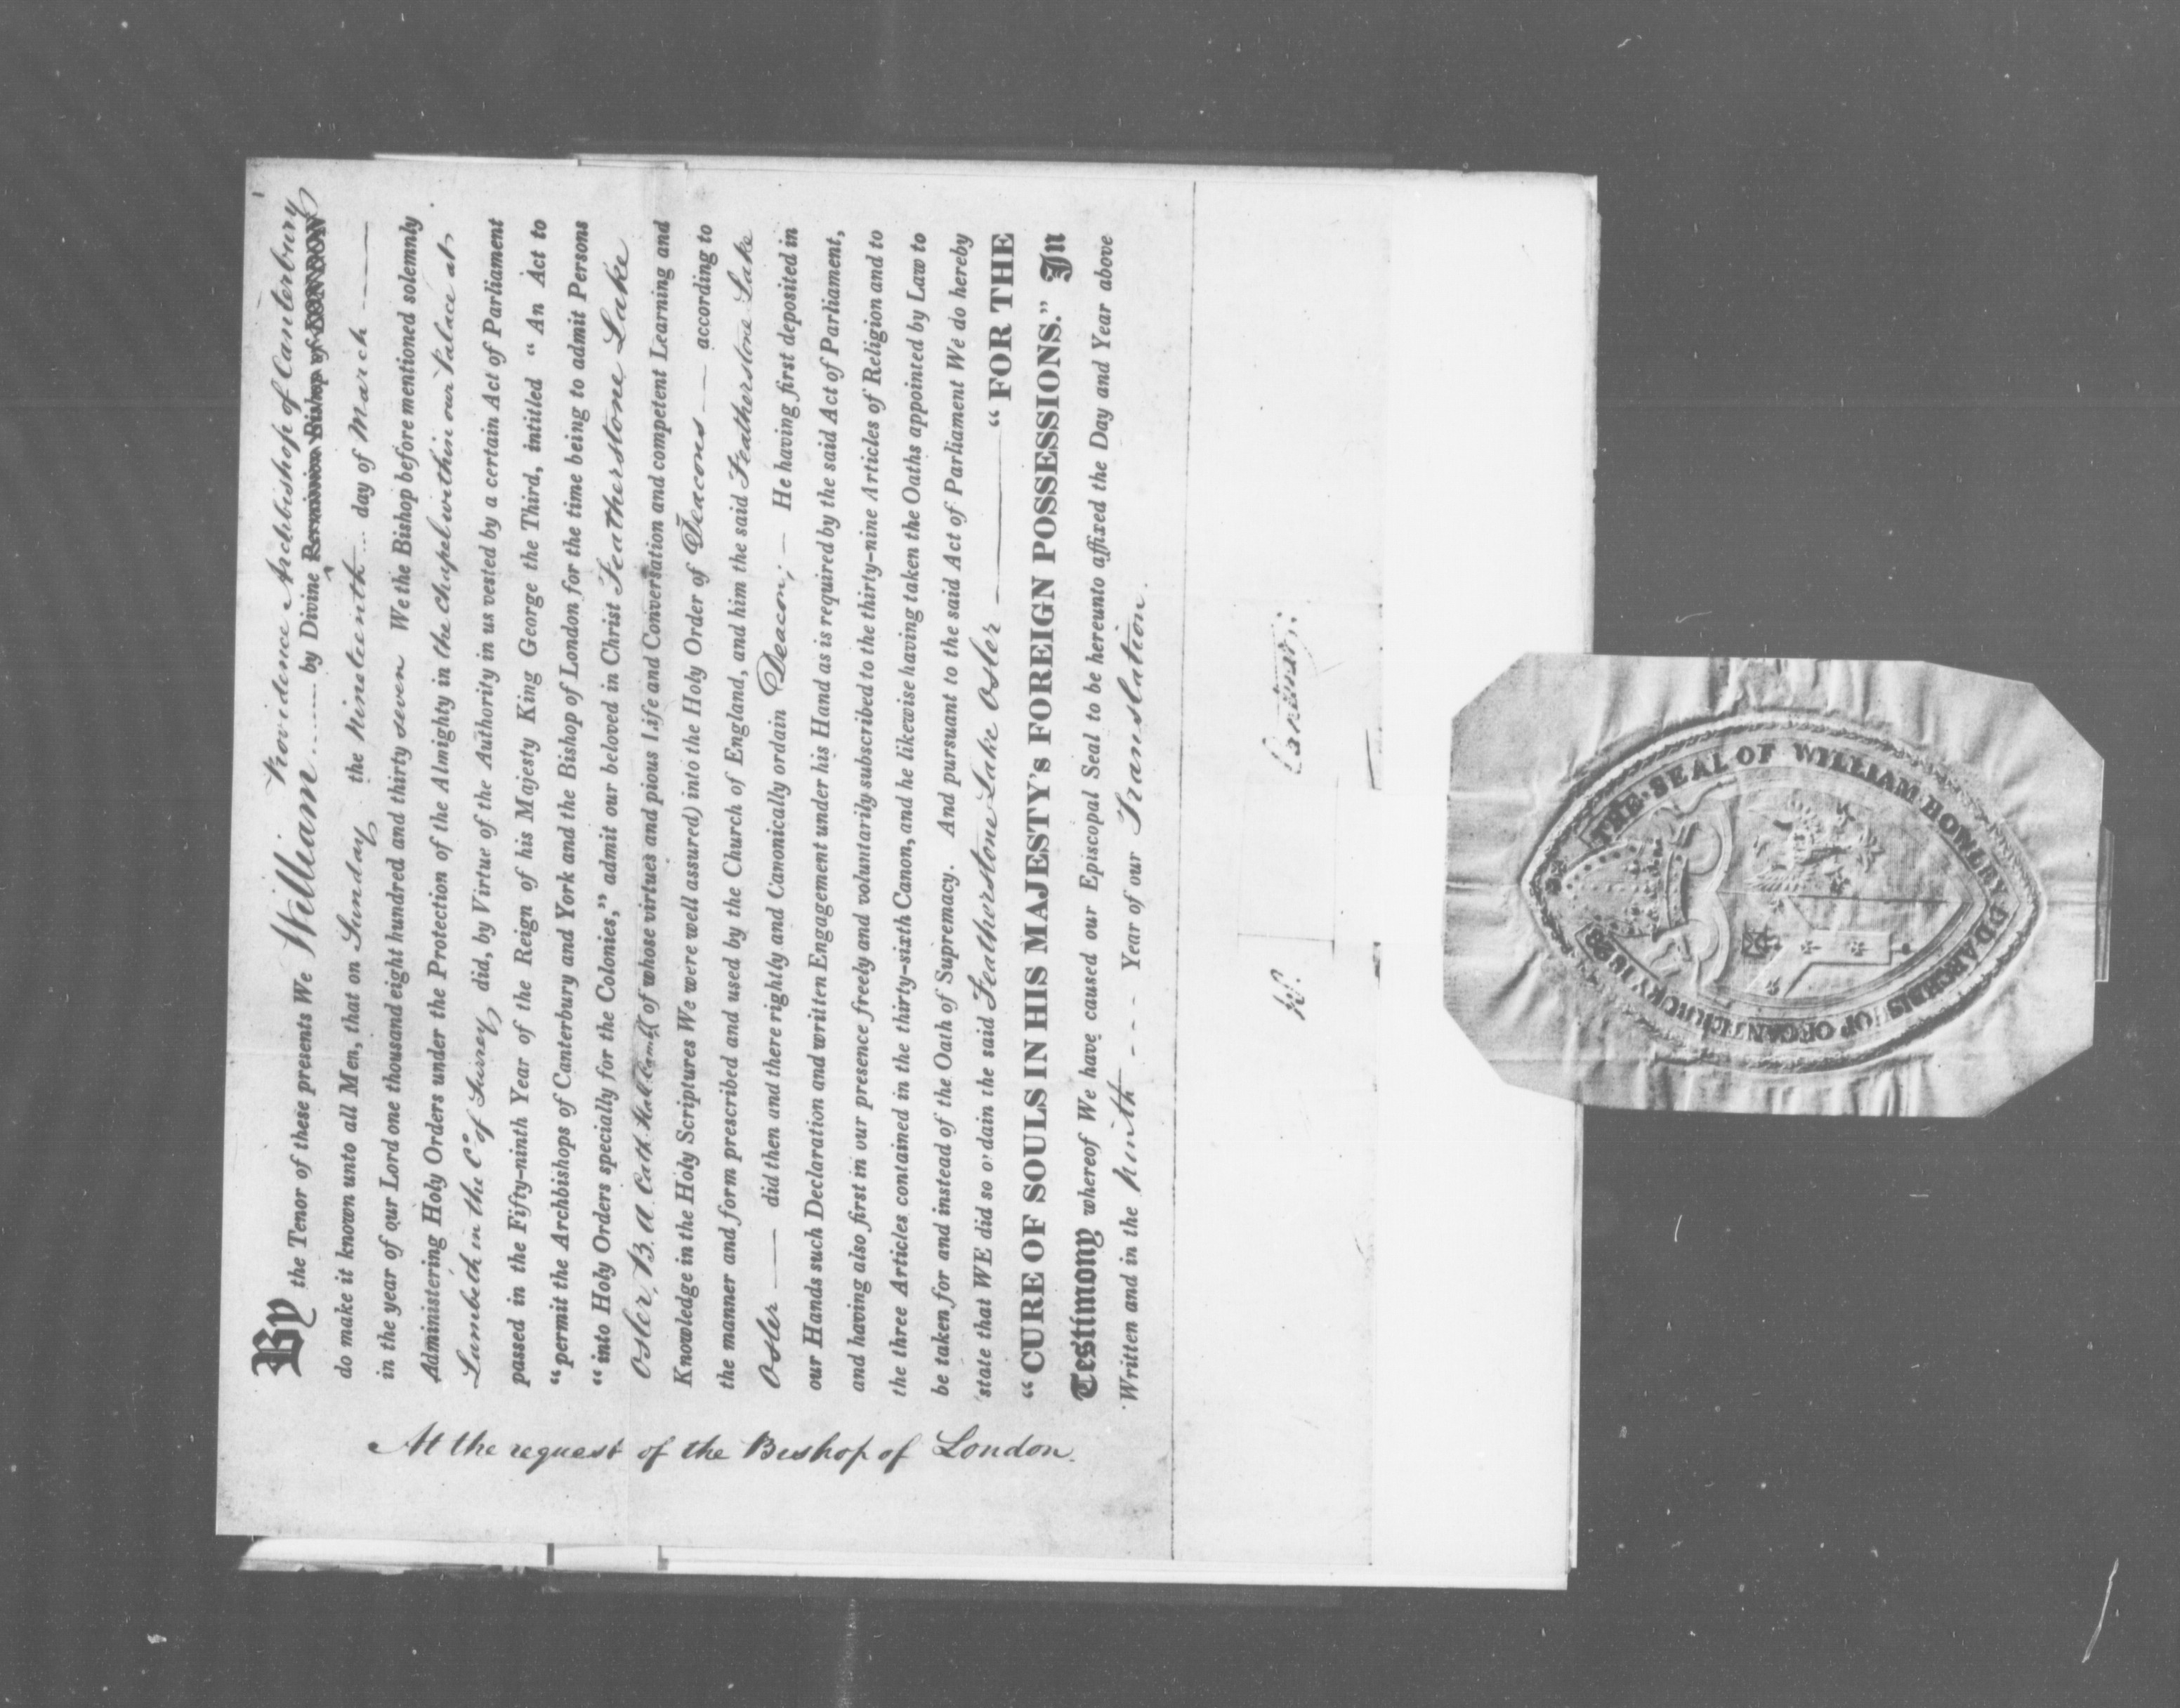 Providence Archbishop of Canterbury
By the Tenor of these presents We William by Divine Permission Bishop of LONDON
do make it known unto all Men, that on Sunday the Nineteenth day of March
in the year of our Lord one thousand eight hundred and thirty seven We the Bishop before mentioned solemnly
Administering Holy Orders under the Protection of the Almighty in the Chapel within our Palace at
Lambeth in the Co of Surrey did, by Virtue of the Authority in us vested by a certain Act of Parliament
passed in the Fifty-ninth Year of the Reign of his Majesty King George the Third, intitled “An Act to
“permit the Archbishops of Canterbury and York and the Bishop of London for the time being to admit Persons
“into Holy Orders specially for the Colonies,” admit our beloved in Christ Featherstone Lake
Osler, B.A. Cath. Hall Camb. (of whose virtues and pious Life and Conversation and competent Learning and
Knowledge in the Holy Scriptures We were well assured) into the Holy Order of Deacons according to
the manner and form prescribed and used by the Church of England, and him the said Featherstone Lake
Osler did then and there rightly and Canonically ordain Deacon; He having first deposited in
our Hands such Declaration and written Engagement under his Hand as is required by the said Act of Parliament,
and having also first in our presence freely and voluntarily subscribed to the thirty-nine Articles of Religion and to
the three Articles contained in the thirty-sixth Canon, and he likewise having taken the Oaths appointed by Law to
be taken for and instead of the Oath of Supremacy. And pursuant to the said Act of Parliament We do hereby
state that WE did so o'dain the said Featherstone Lake Osler “FOR THE
“CURE OF SOULS IN HIS MAJESTY's FOREIGN POSSESSIONS.” In
Testimony whereof We have caused our Episcopal Seal to be hereunto affixed the Day and Year above
Written and in the Ninth Year of our Translation.
At the request of the Bishop of London.
W. Cantuar:
THE SEAL OF WILLIAM HOWLEY D D ARCHBISHOP OF CANTERBURY 1828